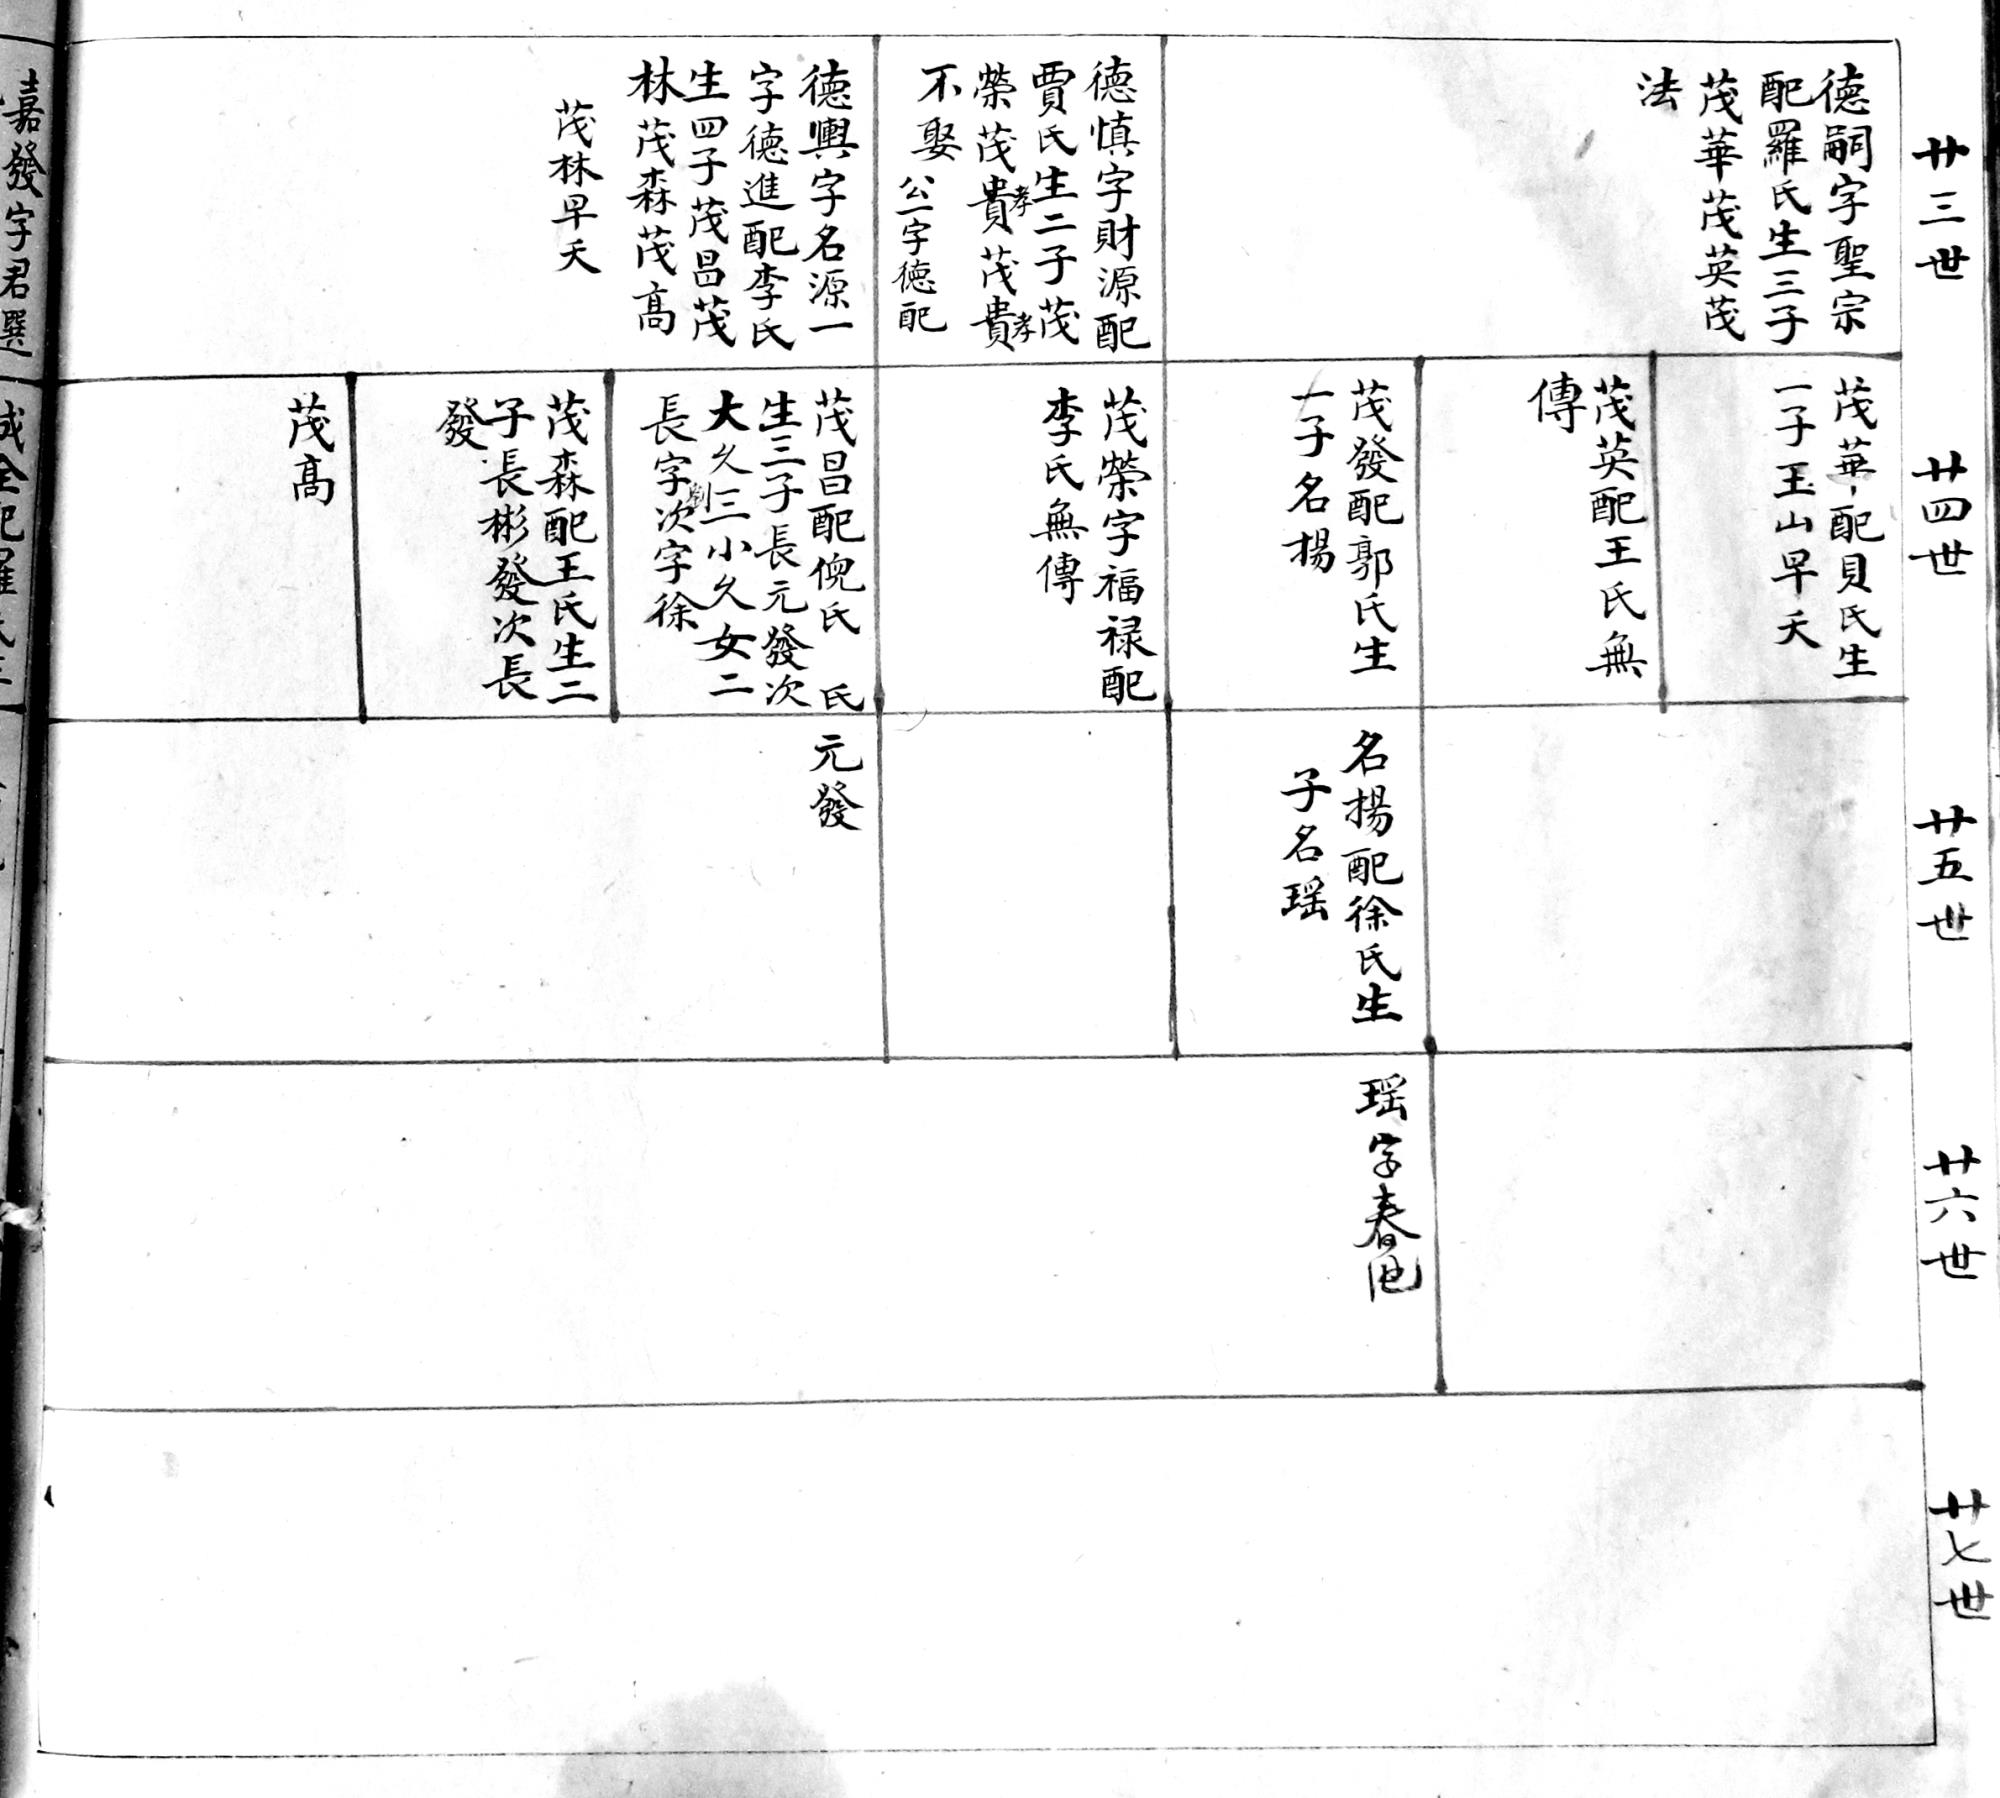 廿三世
德嗣字聖宗
配羅氏生三子
茂華茂英茂
法
德慎字財源配
賈氏生二子茂
榮茂貴孝茂貴孝
不娶
公一字德配
德興字名源一
字德進配李氏
生四子茂昌茂
林茂森茂高
茂林早夭
廿四世
茂華配貝氏生
一子玉山早夭
茂英配王氏無
傳
茂發配郭氏生
一子名揚
茂榮字福禄配
李氏無傳
茂昌配倪氏 氏
生三子長元發次
大久三小久女二
長字次字徐
茂森配王氏生二
子長彬發次長
發
茂高
廿五世
名揚配徐氏生
子名瑶
元發
廿六世
瑶字春
廿七世
嘉發字君選
成全配羅氏